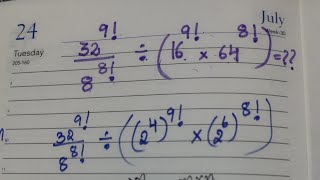 24
Tuesday
July
32^9! / 8^8! ÷ (16^9! × 64^8!) = ??
32^9! / 8^8! ÷ ((2^4)^9! × (2^6)^8!)